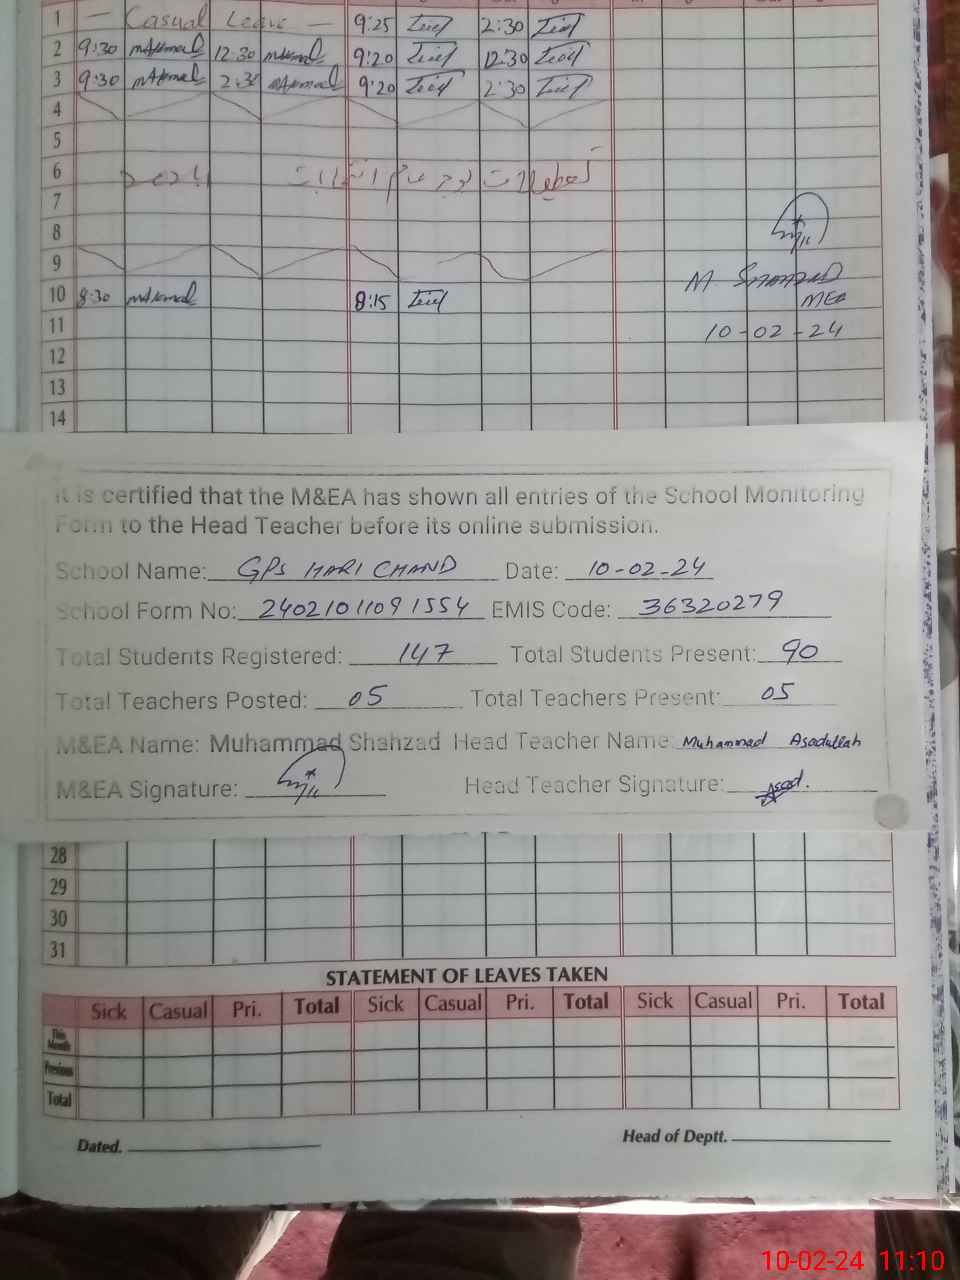 1 — Casual Leave — 9:25 2:30
2 9:30 mAkmal 12:30 mAkmal 9:20 12:30
3 9:30 mAkmal 2:30 mAkmal 9:20 2:30
4
5
6
7
8
9
10 8:30 mAkmal 8:15
M. SHAHZAD
MEA
11 10-02-24
12
13
14
It is certified that the M&EA has shown all entries of the School Monitoring
Form to the Head Teacher before its online submission.
School Name: GPS HARI CHAND Date: 10-02-24
School Form No: 24021011091554 EMIS Code: 36320279
Total Students Registered: 147 Total Students Present: 90
Total Teachers Posted: 05 Total Teachers Present: 05
M&EA Name: Muhammad Shahzad Head Teacher Name: Muhammad Asadullah
M&EA Signature: Head Teacher Signature: Asad.
28
29
30
31
STATEMENT OF LEAVES TAKEN
Sick Casual Pri. Total Sick Casual Pri. Total Sick Casual Pri. Total
This Month
Previous
Total
Dated. Head of Deptt.
10-02-24 11:10